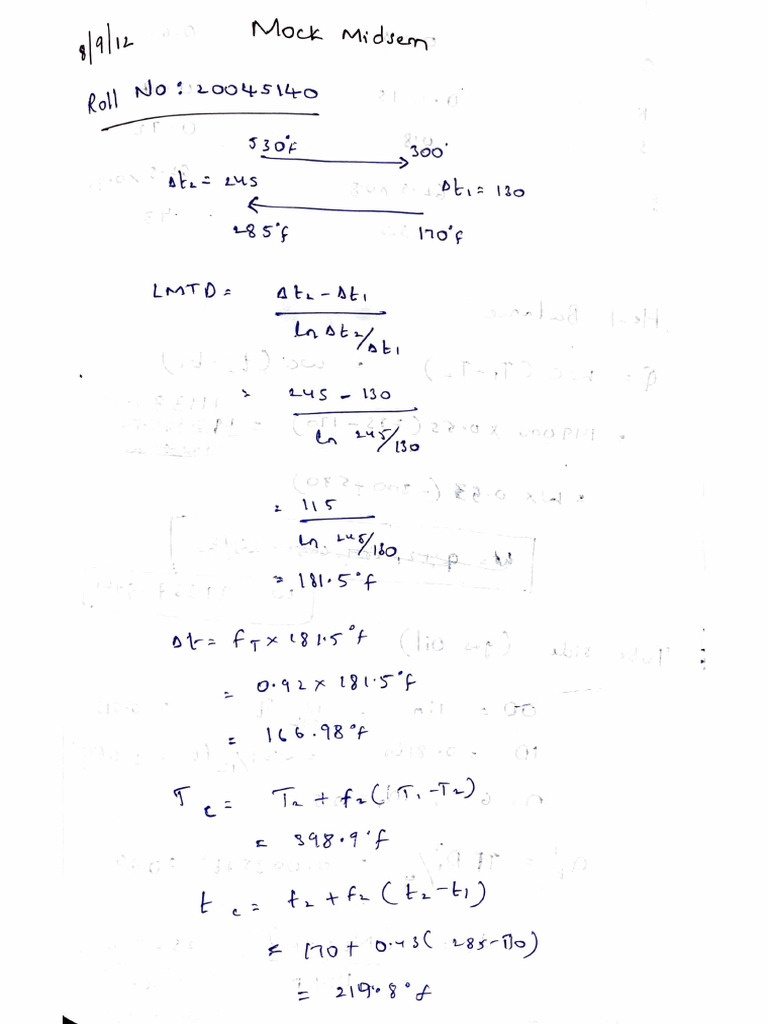 8/9/12
Mock Midsem
Roll No: 20045140
530°F
300°
Δt₂ = 245
Δt₁ = 130
285°f
170°f
LMTD = Δt₂ - Δt₁ / ln Δt₂/Δt₁
= 245 - 130 / ln 245/130
= 115 / ln 245/130
= 181.5°f
Δt = fT × 181.5°f
= 0.92 × 181.5°f
= 166.98°f
Tc = T₂ + f₂(T₁ - T₂)
= 398.9°f
tc = t₂ + f₂ (t₂ - t₁)
= 170 + 0.43( 285-170)
= 219.8°f